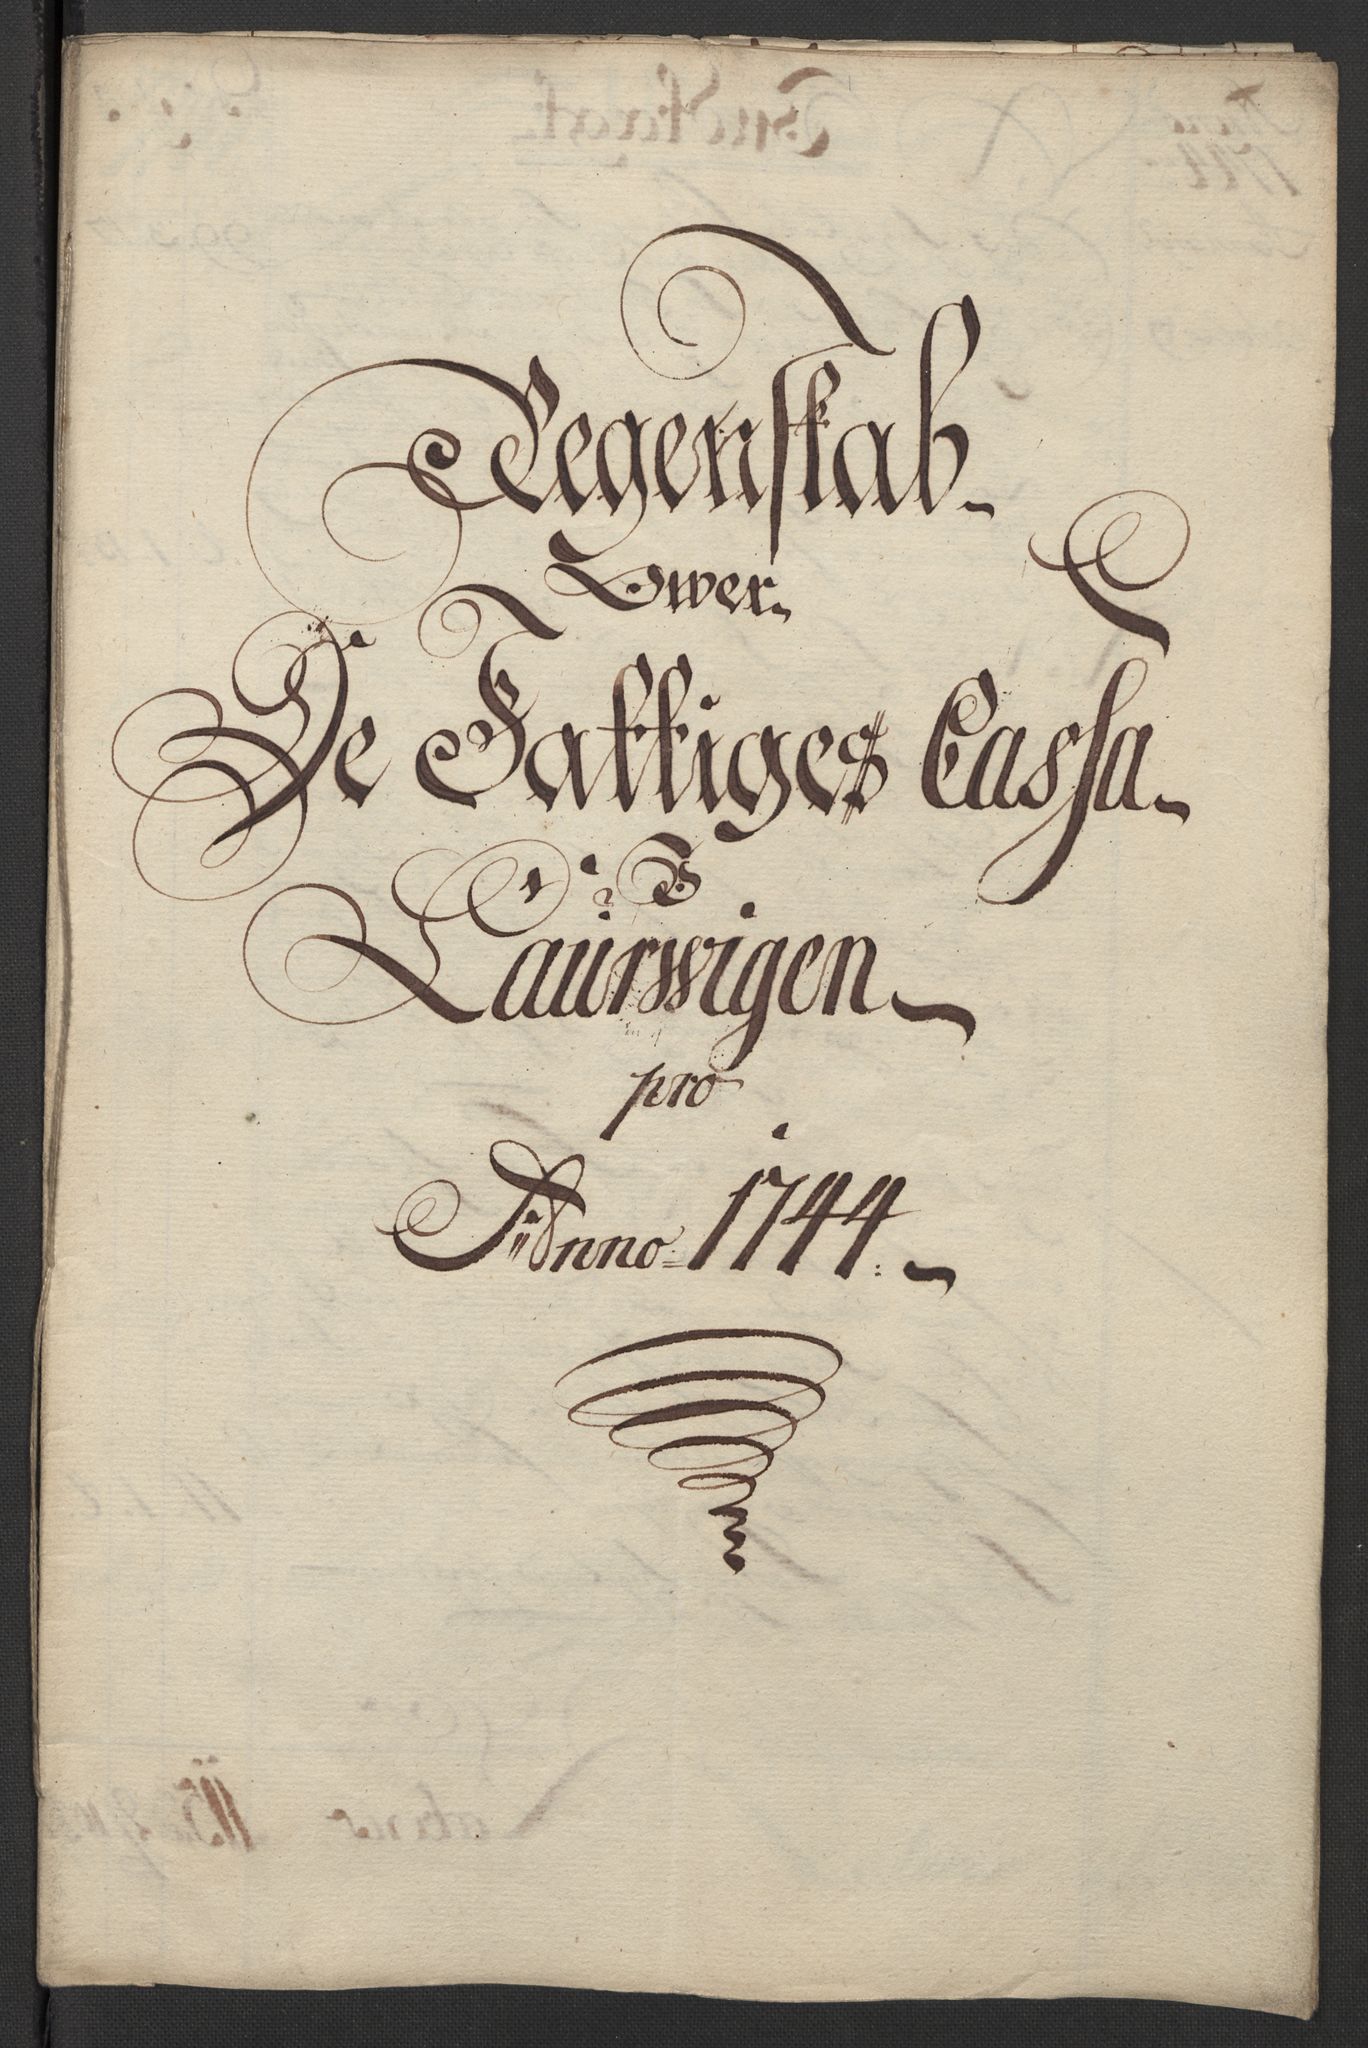 Regenskab
Ower
De Fattiges Cassa
I
Laurwigen
pro
Anno 1744.